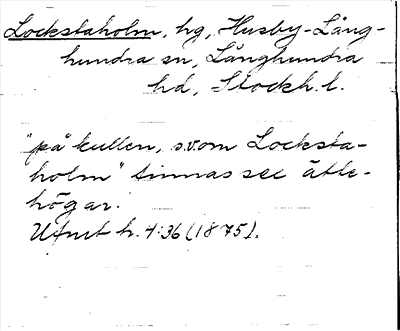 Lockstaholm, hg, Husby-Lång-
hundra sn, Långhundra
hd, Stockh. l.
"på kullen, s.v.om Locksta-
holm" finnas sex ätte-
högar.
UFmt h. 4:36 (1875).